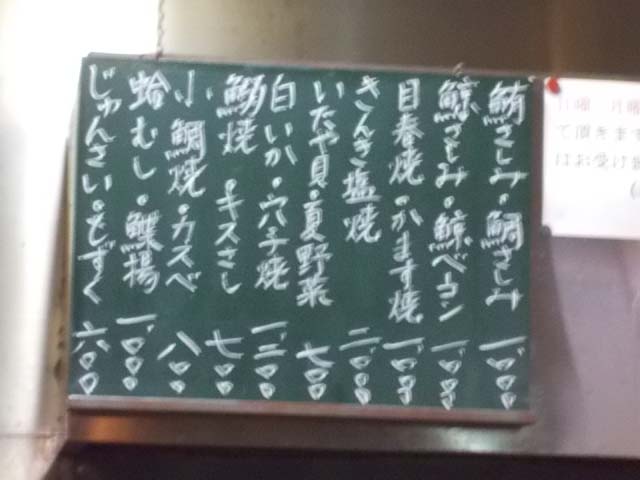 鮪さしみ・鯛さしみ 一、〇〇〇
鯨さしみ・鯨ベーコン 一、〇〇〇
目春焼・かます焼 一、〇〇〇
きんき塩焼 二、〇〇〇
いたや貝・夏野菜 七〇〇
白いか・穴子焼 一、二〇〇
鰯焼・キスさし 七〇〇
小鯛焼・カスベ 八〇〇
蛤むし・鰈揚 一、〇〇〇
じゅんさい・もずく 六〇〇
日曜 月曜
て頂きます
はお受け